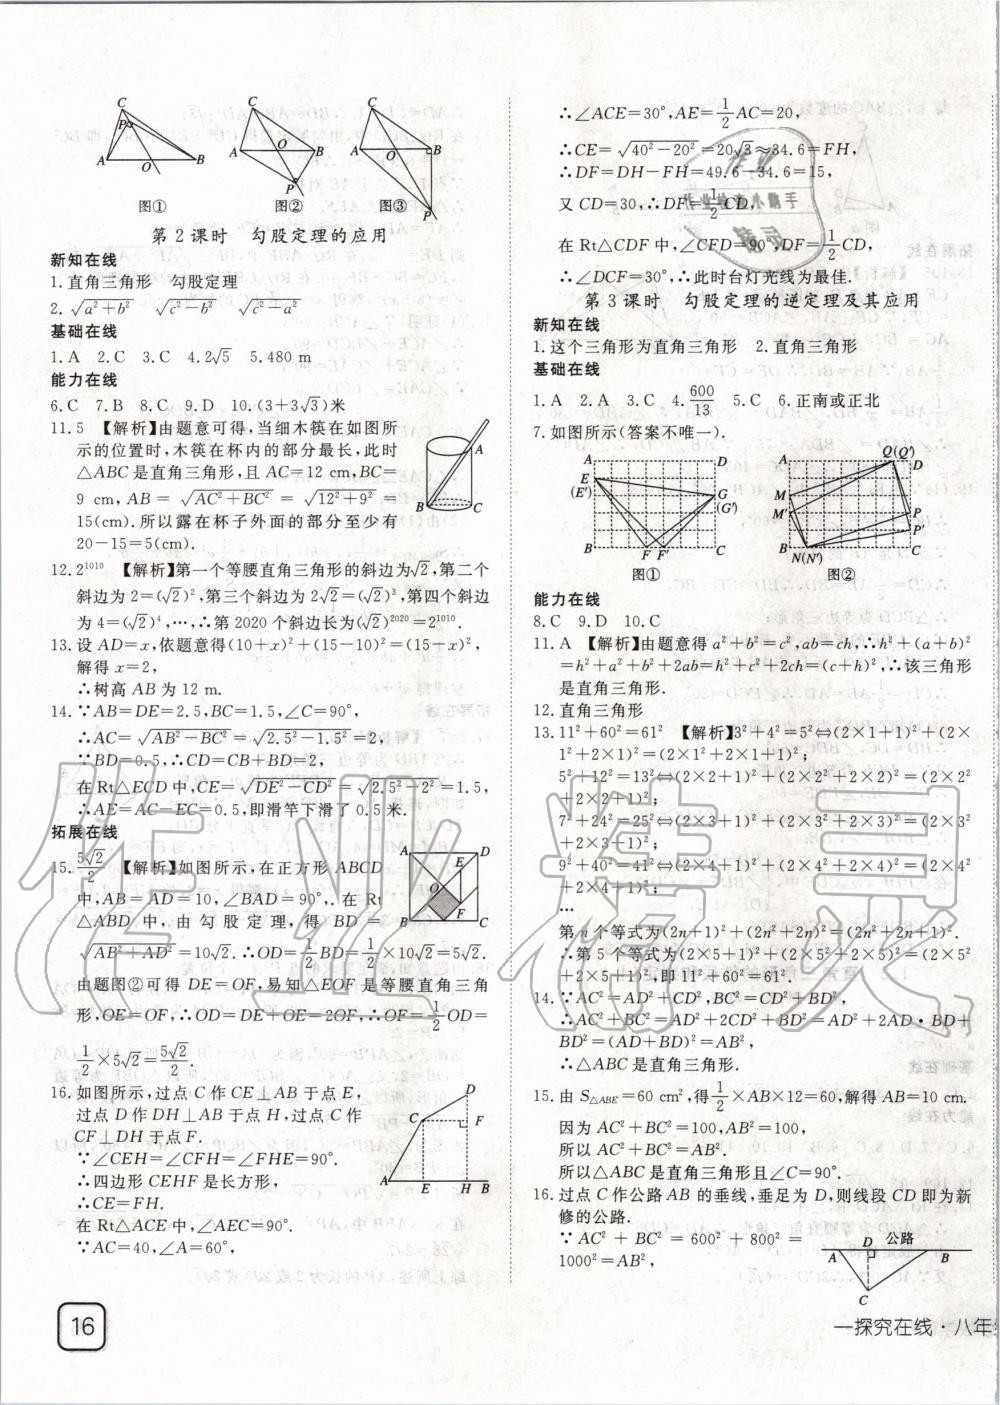 C
P
A
O
B
图①
C
A
O
B
P
图②
C
A
O
B
P
图③
第2课时 勾股定理的应用
新知在线
1.直角三角形 勾股定理
2.√(a²+b²) √(c²-b²) √(c²-a²)
基础在线
1.A 2.C 3.C 4.2√5 5.480 m
能力在线
6.C 7.B 8.C 9.D 10.(3+3√3)米
11.5 【解析】由题意可得,当细木筷在如图所
示的位置时,木筷在杯内的部分最长,此时
△ABC是直角三角形,且AC=12 cm,BC=
9 cm,AB=√(AC²+BC²)=√(12²+9²)=
15(cm).所以露在杯子外面的部分至少有
20-15=5(cm).
A
B
C
12.2¹⁰¹⁰ 【解析】第一个等腰直角三角形的斜边为√2,第二个
斜边为2=(√2)²,第三个斜边为2√2=(√2)³,第四个斜边
为4=(√2)⁴,…,∴第2020个斜边长为(√2)²⁰²⁰=2¹⁰¹⁰.
13.设AD=x,依题意得(10+x)²+(15-10)²=(15-x)²,
解得x=2,
∴树高AB为12 m.
14.∵AB=DE=2.5,BC=1.5,∠C=90°,
∴AC=√(AB²-BC²)=√(2.5²-1.5²)=2,
∵BD=0.5,∴CD=CB+BD=2,
在Rt△ECD中,CE=√(DE²-CD²)=√(2.5²-2²)=1.5,
∴AE=AC-EC=0.5,即滑竿下滑了0.5米.
拓展在线
15.5√2/2 【解析】如图所示,在正方形ABCD
中,AB=AD=10,∠BAD=90°,在Rt
△ABD中,由勾股定理,得BD=
√(AB²+AD²)=10√2.∴OD=1/2BD=1/2×10√2=5√2.
由题图②可得DE=OF,易知△EOF是等腰直角三角
形,OE=OF,∴OD=DE+OE=2OF,∴OF=1/2OD=
1/2×5√2=5√2/2.
A
D
E
O
F
B
C
16.如图所示,过点C作CE⊥AB于点E,
过点D作DH⊥AB于点H,过点C作
CF⊥DH于点F.
∵∠CEH=∠CFH=∠FHE=90°.
∴四边形CEHF是长方形,
∴CE=FH.
在Rt△ACE中,∠AEC=90°.
∵AC=40,∠A=60°,
D
C
F
A
E
H
B
∴∠ACE=30°,AE=1/2AC=20,
∴CE=√(40²-20²)=20√3≈34.6=FH,
∴DF=DH-FH=49.6-34.6=15,
又CD=30,∴DF=1/2CD,
在Rt△CDF中,∠CFD=90°,DF=1/2CD,
∴∠DCF=30°.∴此时台灯光线为最佳.
第3课时 勾股定理的逆定理及其应用
新知在线
1.这个三角形为直角三角形 2.直角三角形
基础在线
1.A 2.A 3.C 4.600/13 5.C 6.正南或正北
7.如图所示(答案不唯一).
A
D
E
(E′)
G
(G′)
B
F
F′
C
图①
A
Q(Q′)
D
M
M′
P
P′
B
N(N′)
C
图②
能力在线
8.C 9.D 10.C
11.A 【解析】由题意得a²+b²=c²,ab=ch,∴h²+(a+b)²
=h²+a²+b²+2ab=h²+c²+2ch=(c+h)²,∴该三角形
是直角三角形.
12.直角三角形
13.11²+60²=61² 【解析】3²+4²=5²⇔(2×1+1)²+(2×
1²+2×1)²=(2×1²+2×1+1)²;
5²+12²=13²⇔(2×2+1)²+(2×2²+2×2)²=(2×2²
+2×2+1)²;
7²+24²=25²⇔(2×3+1)²+(2×3²+2×3)²=(2×3²
+2×3+1)²;
9²+40²=41²⇔(2×4+1)²+(2×4²+2×4)²=(2×4²
+2×4+1)²;
…
第n个等式为(2n+1)²+(2n²+2n)²=(2n²+2n+1)².
∴第5个等式为(2×5+1)²+(2×5²+2×5)²=(2×5²
+2×5+1)²,即11²+60²=61².
14.∵AC²=AD²+CD²,BC²=CD²+BD²,
∴AC²+BC²=AD²+2CD²+BD²=AD²+2AD·BD+
BD²=(AD+BD)²=AB²,
∴△ABC是直角三角形.
15.由S△ABE=60 cm²,得1/2×AB×12=60,解得AB=10 cm.
因为AC²+BC²=100,AB²=100,
所以AC²+BC²=AB².
所以△ABC是直角三角形且∠C=90°.
16.过点C作公路AB的垂线,垂足为D,则线段CD即为新
修的公路.
∵AC²+BC²=600²+800²=
1000²=AB²,
D 公路
A
B
C
16
一探究在线·八年
作业精灵
作业检查小助手
精灵